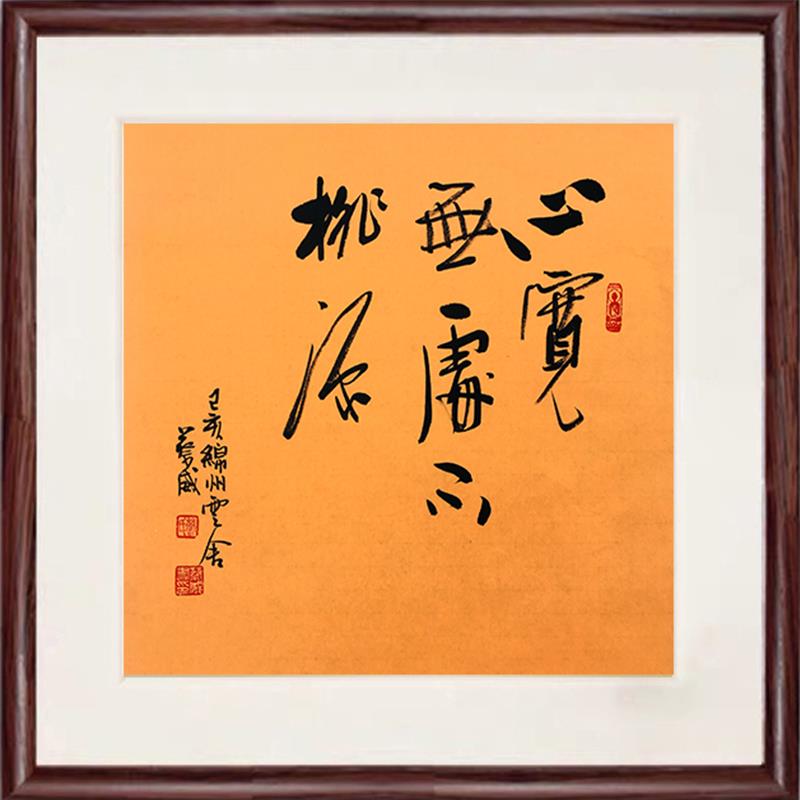 心寬
無處不
桃源
己亥綿州雲舍
蔡威